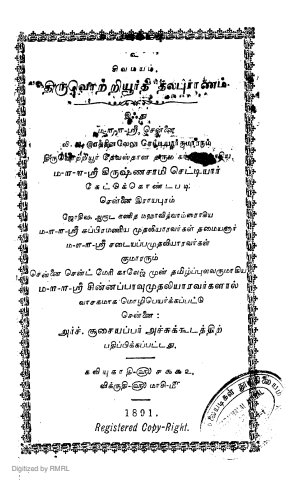 உ
சிவமயம்,
திருவொற்றியூர்த் தலபுராணம்
இஃது
சென்னை
திருவொற்றியூர் தேவஸ்தான தரும
ம-ள-ள-ஸ்ரீ கிருஷ்ணசாமி செட்டியார்
கேட்டுக்கொண்டபடி
சென்னை இராயபுரம்
ஜோதிஷ ஆரூட கணித மஹாவித்வாம்சராகிய
ம-ள-ள-ஸ்ரீ சுப்பிரமணிய முதலியாரவர்கள் தமையனார்
ம-ள-ள-ஸ்ரீ சடையப்பமுதலியாரவர்கள்
குமாரரும்
சென்னை சென்ட் மேரி காலேஜ் முன் தமிழ்ப்புலவருமாகிய
ம-ள-ள-ஸ்ரீ சின்னப்பாவுமுதலியாரவர்களால்
வாசகமாக மொழிபெயர்க்கப்பட்டு
சென்னை :
அர்ச். சூசையப்பர் அச்சுக்கூடத்திற்
பதிப்பிக்கப்பட்டது,
கலியுகாதி
விக்ருதி மாசி
1891.
Registered Copy-Right.
Digitized by RMRL